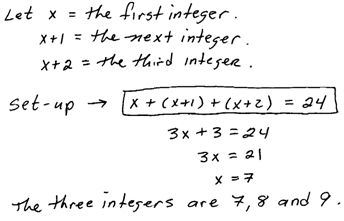 Let x = the first integer.
x+1 = the next integer.
x+2 = the third integer.
set-up → x + (x+1) + (x+2) = 24
3x + 3 = 24
3x = 21
x = 7
The three integers are 7, 8 and 9.